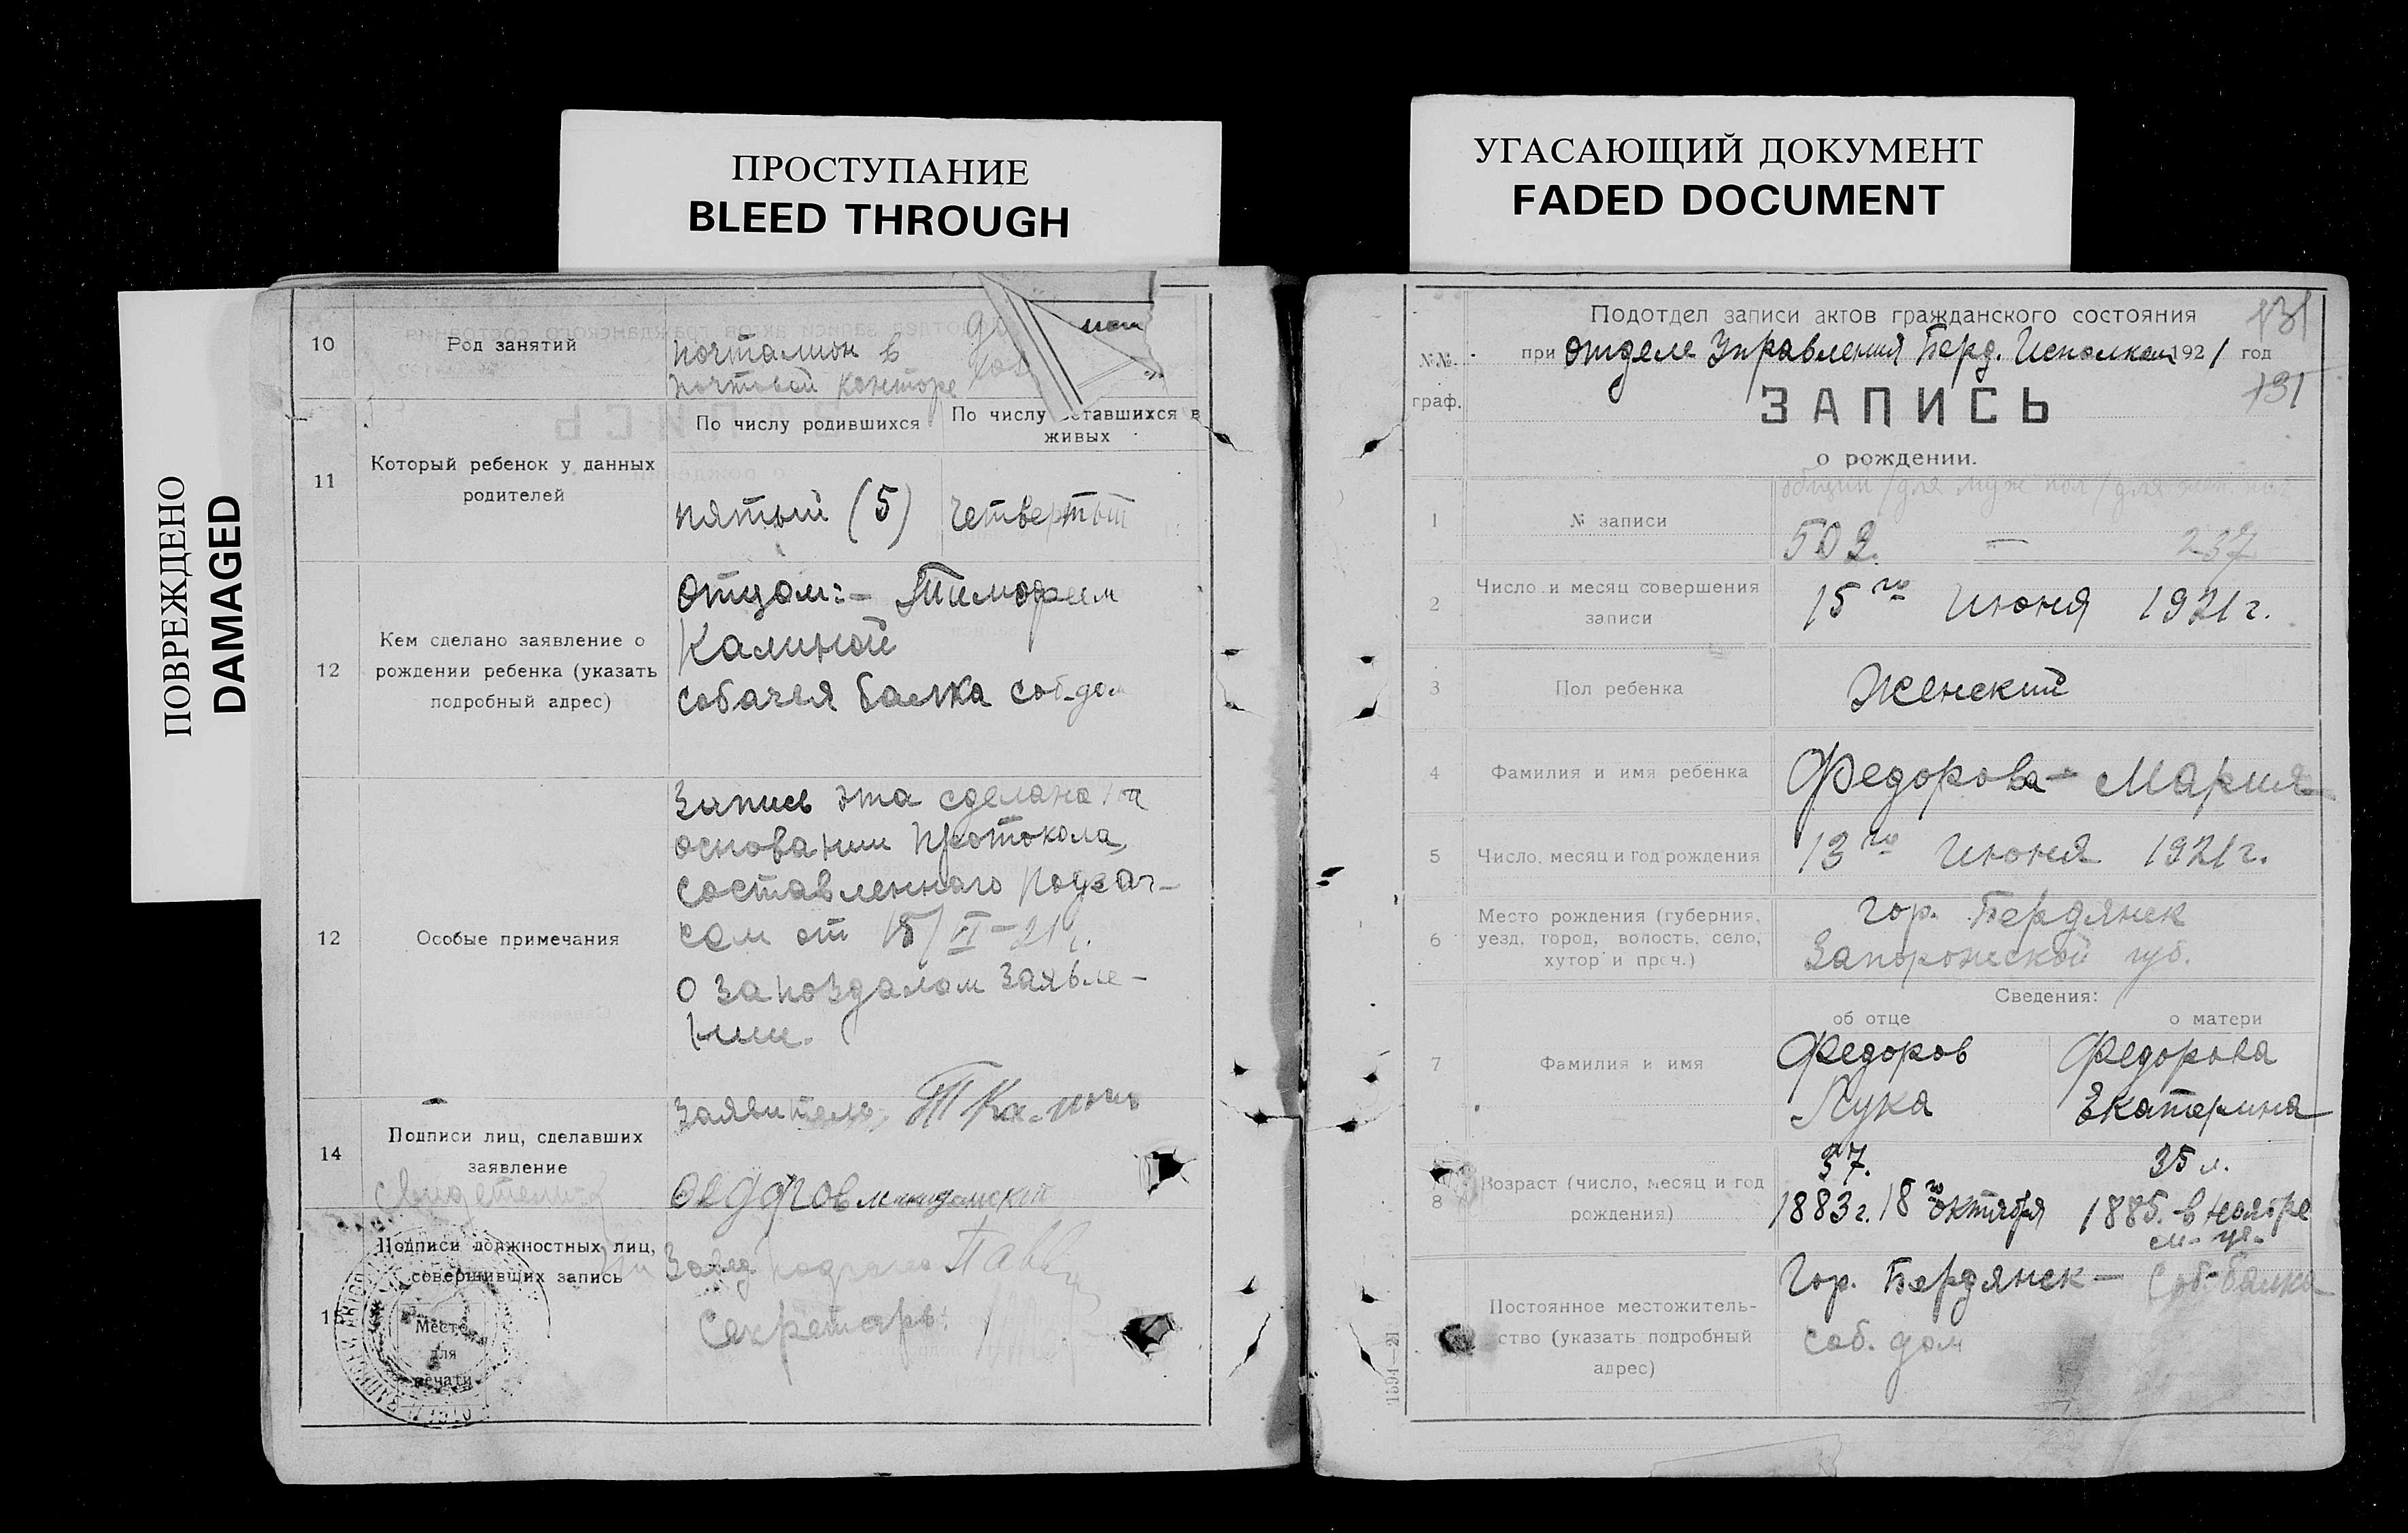 ПРОСТУПАНИЕ
BLEED THROUGH
УГАСАЮЩИЙ ДОКУМЕНТ
FADED DOCUMENT
ПОВРЕЖДЕНО
DAMAGED
10 Род занятий
почталион в
почтовой конторе
11 Который ребенок у данных родителей
По числу родившихся
По числу оставшихся в живых
пятый (5)
четвертый
12 Кем сделано заявление о рождении ребенка (указать подробный адрес)
Отцом:- Тимофеем
Калиной
собачья балка соб-дом
12 Особые примечания
Запись эта сделана на
основании протокола,
составленнаго
от 15/VI-21 г.
о запоздалом заявле-
нии.
14 Подписи лиц, сделавших заявление
Свидетели
Заявитель,
15 Подписи должностных лиц, совершивших запись
Место для печати
Завед
Секретарь:
Подотдел записи актов гражданского состояния
при отделе Управления Берд. Исполкома 1921 год
131
131
№№ граф.
ЗАПИСЬ
о рождении.
общий / для муж пол / для жен. пол
1 № записи
502. — 237
2 Число и месяц совершения записи
15го Июня 1921 г.
3 Пол ребенка
Женский
4 Фамилия и имя ребенка
Федорова - Мария
5 Число, месяц и год рождения
13го Июня 1921 г.
6 Место рождения (губерния, уезд, город, волость, село, хутор и проч.)
гор. Бердянск
Запорожской губ.
Сведения:
об отце
о матери
7 Фамилия и имя
Федоров
Лука
Федорова
Екатерина
8 Возраст (число, месяц и год рождения)
37.
1883 г. 18го октября
35 л.
1885. в ноябре
м-це.
Постоянное местожительство (указать подробный адрес)
Гор. Бердянск - Соб-балка
соб. дом
1594—21